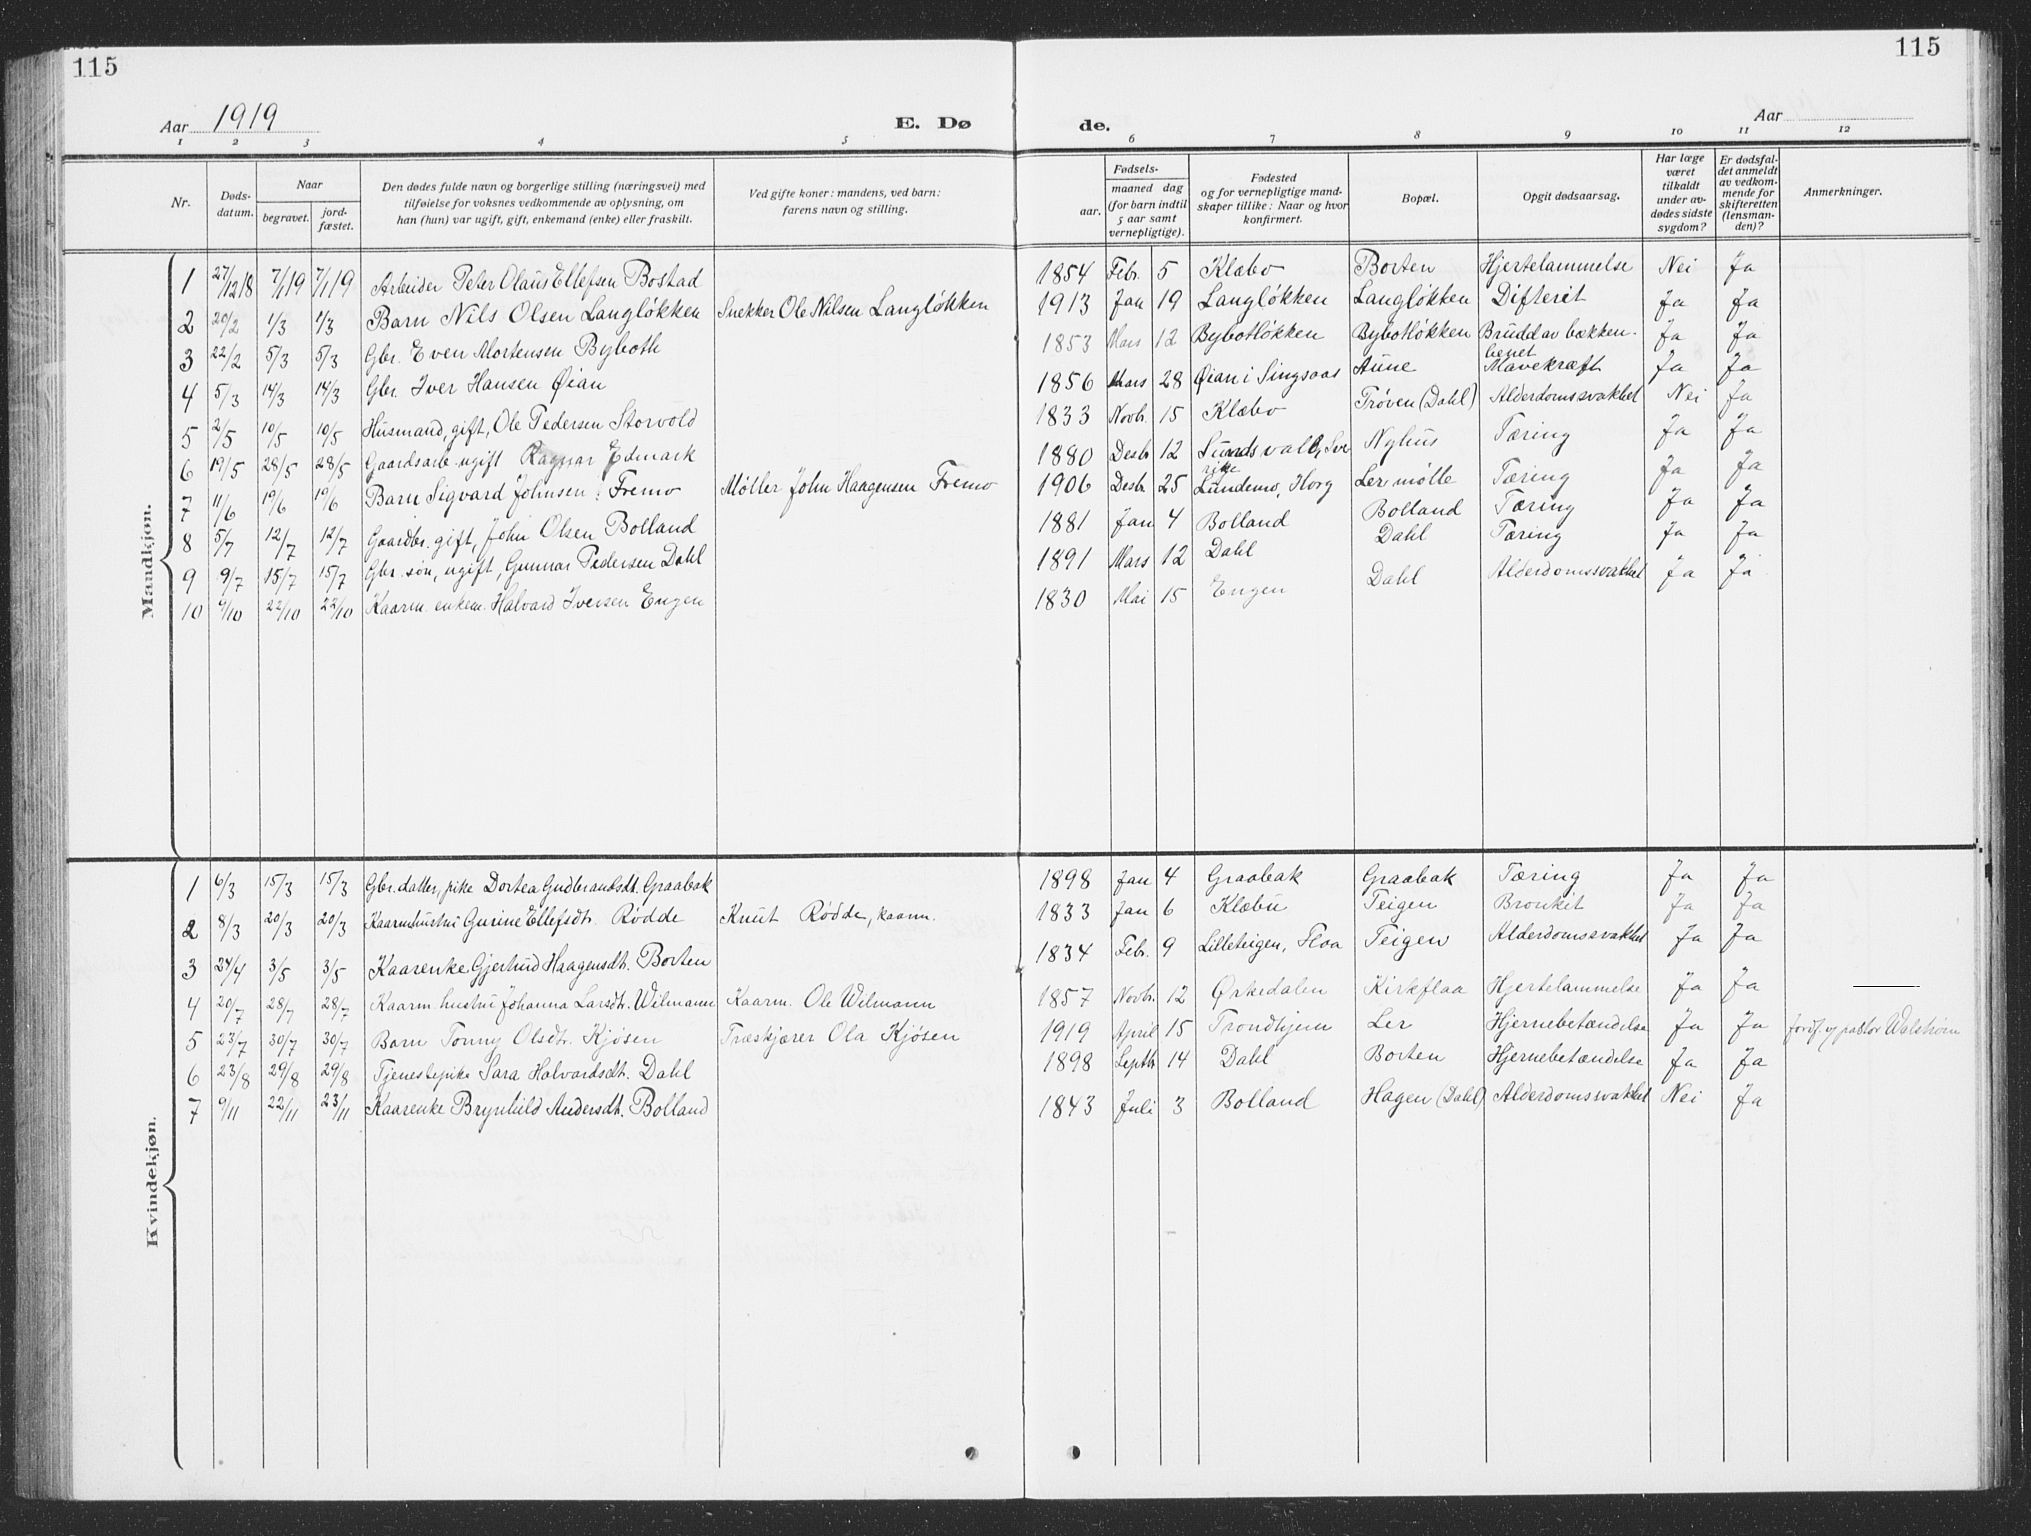 115
115
Aar 1919
E. Dø
de.
Aar
1 2 3 4 5 6 7 8 9 10 11 12
Nr.
Døds-
datum.
Naar
begravet.
jord-
fæstet.
Den dødes fulde navn og borgerlige stilling (næringsvei) med
tilføielse for voksnes vedkommende av oplysning, om
han (hun) var ugift, gift, enkemand (enke) eller fraskilt.
Ved gifte koner: mandens, ved barn:
farens navn og stilling.
Fødsels-
aar.
maaned dag
(for barn indtil
5 aar samt
vernepligtige).
Fødested
og for vernepligtige mand-
skaper tillike: Naar og hvor
konfirmert.
Bopæl.
Opgit dødsaarsag.
Har læge
været
tilkaldt
under av-
dødes sidste
sygdom?
Er dødsfal-
det anmeldt
av vedkom-
mende for
skifteretten
(lensman-
den)?
Anmerkninger.
Maadkjøn.
1 27/12 18 7/1 19 7/1 19 Arbeider Peter Olaus Ellefsen Bostad 1854 Febr. 5 Klæbo Borten Hjertelammelse Nei Ja
2 20/2 1/3 1/3 Barn Nils Olsen Langløkken Snekker Ole Nilsen Langløkken 1913 Jan 19 Langløkken Langløkken Difterit Ja Ja
3 22/2 5/3 5/3 Gbr. Even Mortensen Byboth 1853 Mars 12 Bybotløkken Bybotløkken Brudd av bækken-
benet Ja Ja
4 5/3 14/3 14/3 Gbr. Iver Hansen Øian 1856 Mars 28 Øian i Singsaas Aune Mavekræft Ja Ja
5 2/5 10/5 10/5 Husmand, gift, Ole Pedersen Storvold 1833 Novbr. 15 Klæbo Trøven (Dahl) Alderdomssvakhet Nei Ja
6 19/5 28/5 28/5 Gaardsarb. ugift Ragnar Edmark 1880 Desbr. 12 Sundsvall, Sve-
rige Nyhus Tæring Ja Ja
7 11/6 19/6 19/6 Barn Sigvard Johnsen Fremo Møller John Haagensen Fremo 1906 Desbr. 25 Lundemo, Horg Ler mølle Tæring Ja Ja
8 5/7 12/7 12/7 Gaardbr. gift, John Olsen Bolland 1881 Jan 4 Bolland Bolland Tæring Ja Ja
9 9/7 15/7 15/7 Gbr. søn, ugift, Gunnar Pedersen Dahl 1891 Mars 12 Dahl Dahl Tæring Ja Ja
10 9/10 22/10 22/10 Kaarm. enkem. Halvard Iversen Engen 1830 Mai 15 Engen Dahl Alderdomssvakhet Ja Ja
Kvindekjøn.
1 6/3 15/3 15/3 Gbr. datter, pike Dortea Gudbrandsdt. Graabak 1898 Jan 4 Graabak Graabak Tæring Ja Ja
2 8/3 20/3 20/3 Kaarmhustru Gurine Ellefsdt. Rødde Knut Rødde, kaarm. 1833 Jan 6 Klæbu Teigen Bronkit Ja Ja
3 24/4 3/5 3/5 Kaarenke Gjertrud Haagensdt. Borten 1834 Febr. 9 Lilleteigen, Floa Teigen Alderdomssvakhet Ja Ja
4 20/7 28/7 28/7 Kaarm. hustru Johanna Larsdt. Wilmann Kaarm. Ole Wilmann 1857 Novbr. 12 Orkedalen Kirkflaa Hjertelammelse Ja Ja
5 23/7 30/7 30/7 Barn Tonny Olsdt. Kjøsen Træskjærer Ola Kjøsen 1919 April 15 Trondhjem Ler Hjernebetændelse Ja Ja
6 23/8 29/8 29/8 Tjenestepike Sara Halvardsdt. Dahl 1898 Septbr. 14 Dahl Borten Hjernebetændelse Ja Ja
7 9/11 22/11 23/11 Kaarenke Brynhild Andersdt. Bolland 1843 Juli 3 Bolland Hagen (Dahl) Alderdomssvakhet Nei Ja